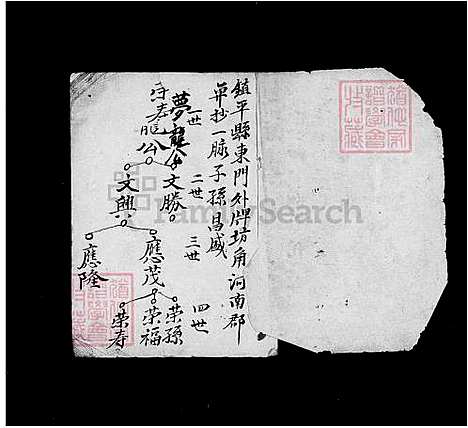 鎮平縣東門外牌坊角河南郡
草抄一脉子孫昌盛
一世
二世
三世
四世
夢龍公
文勝
文興
應茂
應隆
荣孫
荣福
荣寿
FamilySearch